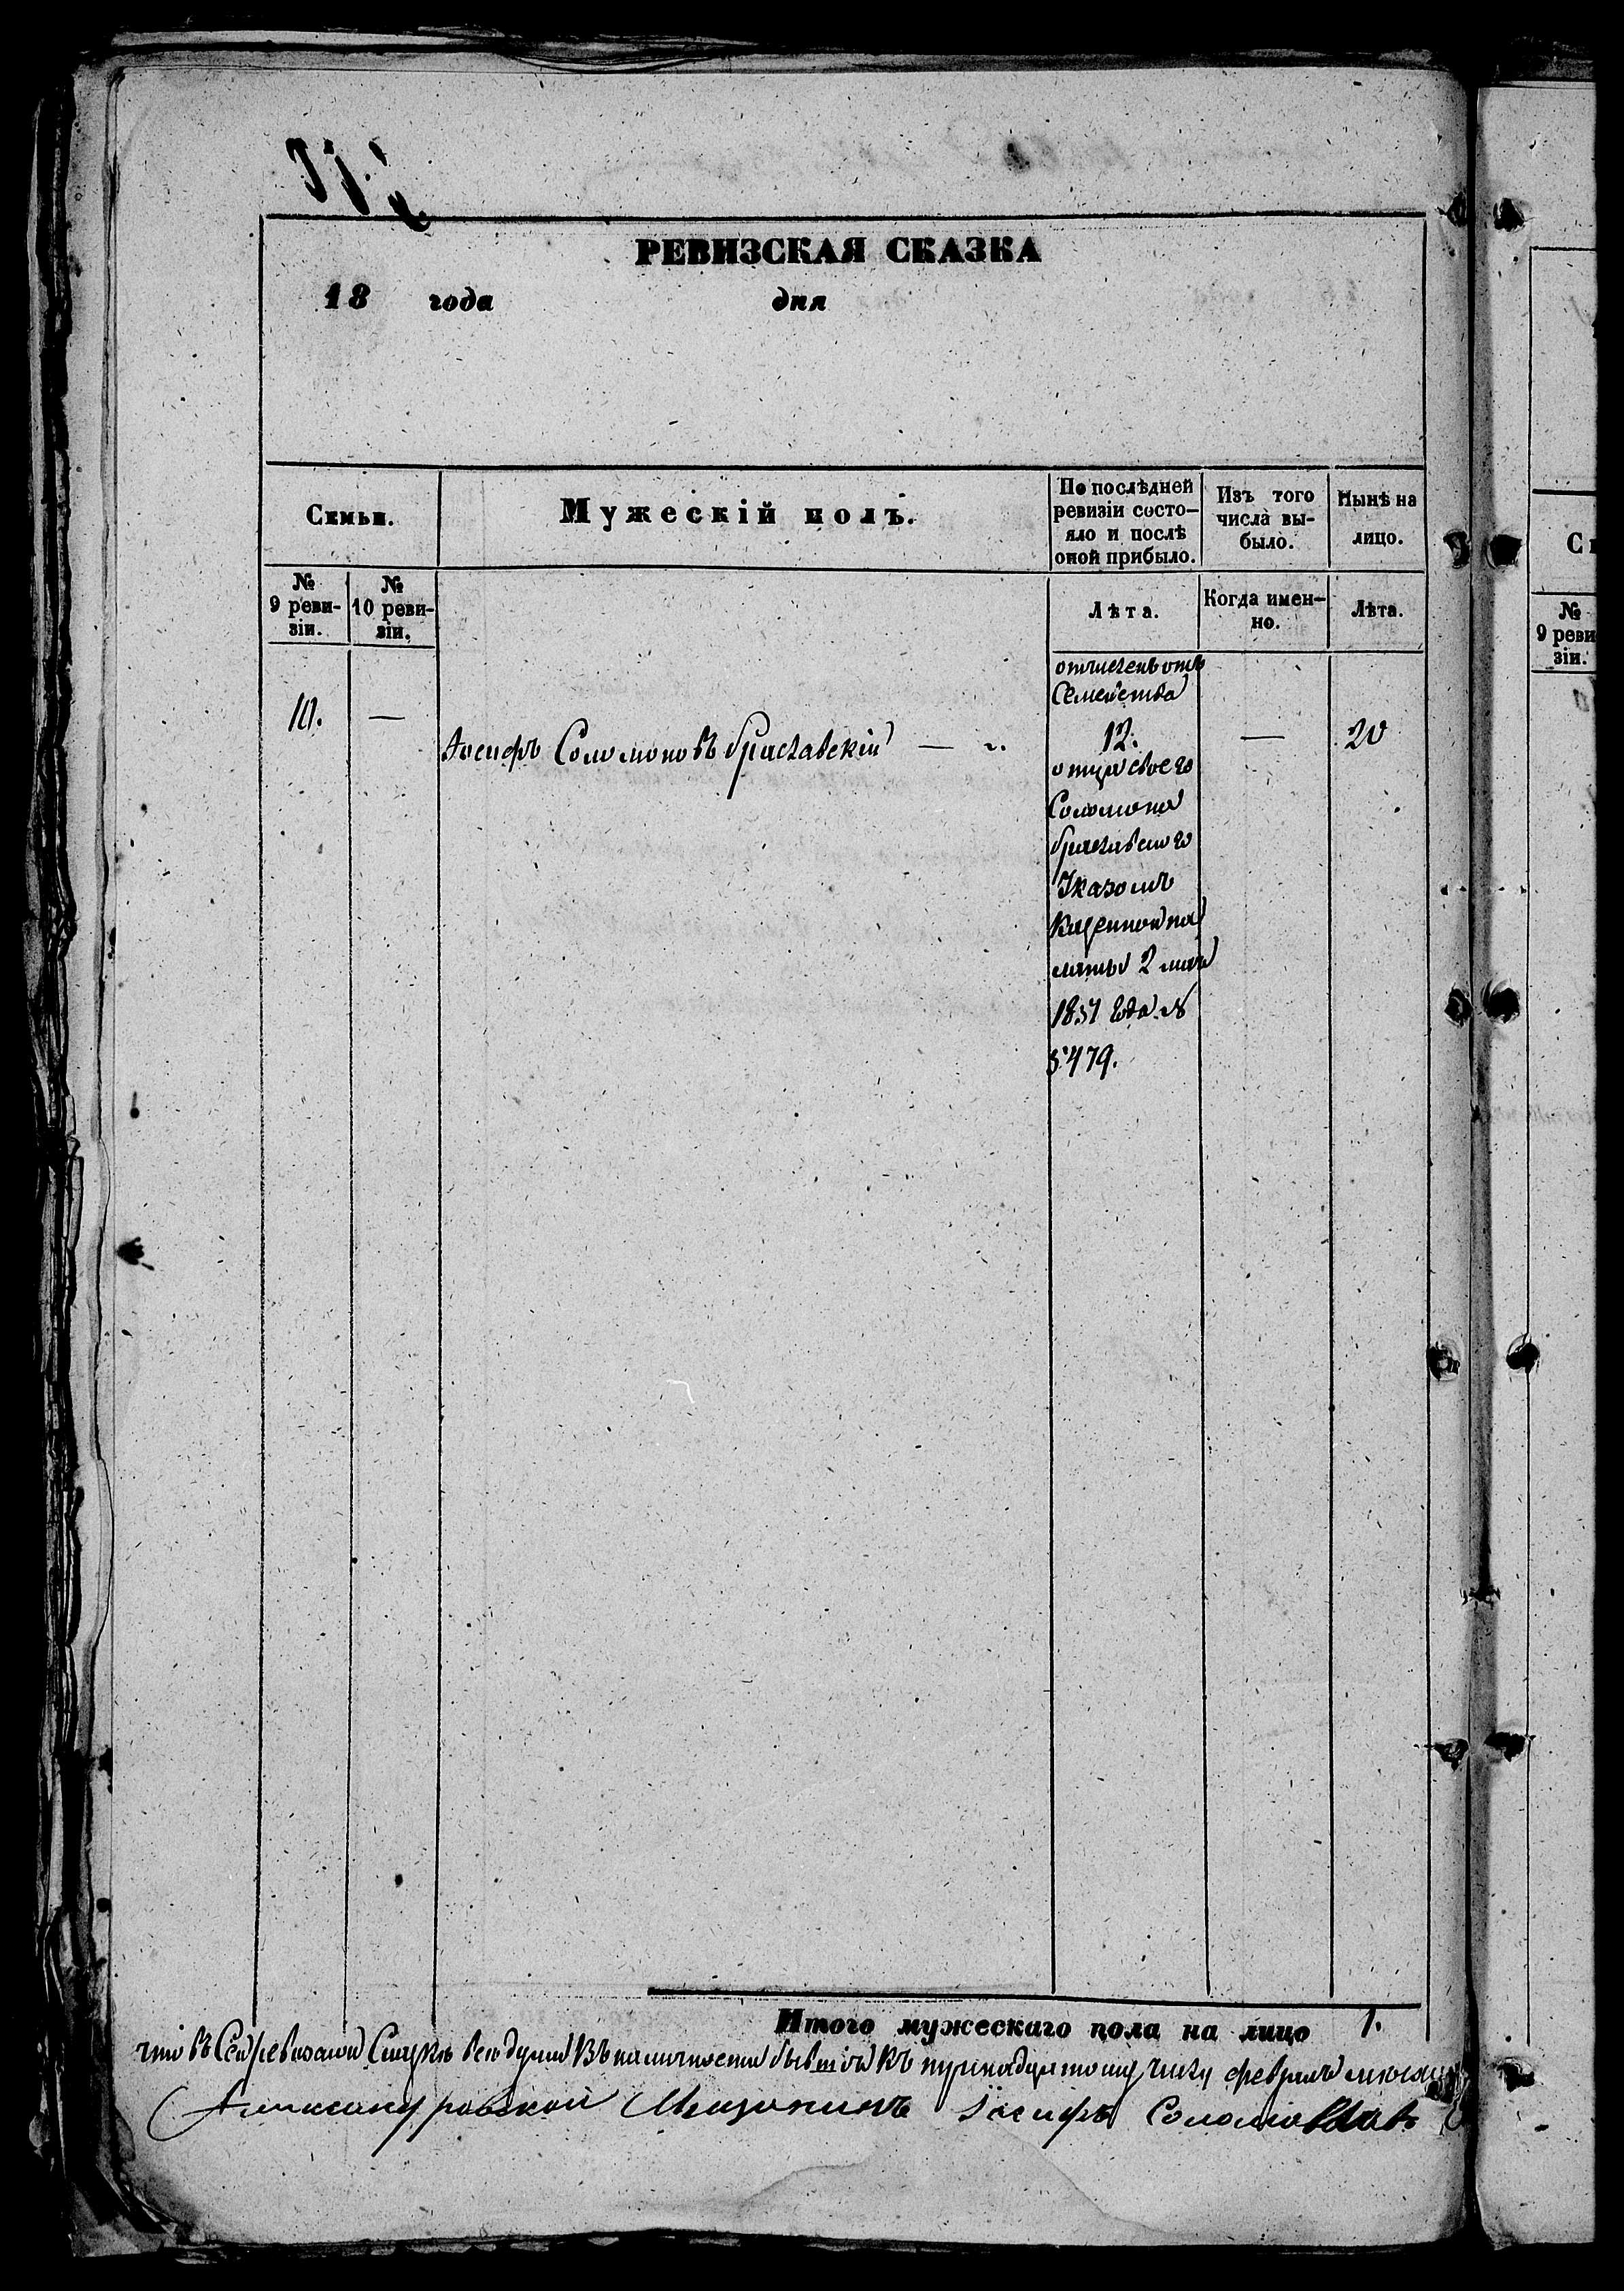 РЕВИЗСКАЯ СКАЗКА
18 года дня
Семьи.
Мужескій полъ.
По послѣдней
ревизіи состо–
яло и послѣ
оной прибыло.
Изъ того
числа вы-
было.
Нынѣ на
лицо.
№
9 реви-
зіи.
№
10 реви-
зіи.
Лѣта.
Когда имен–
но.
Лѣта.
отчисленъ отъ
Семейства
10. — Іосифъ Соломоновъ Браславскій — 12. — 20
отца своего
Соломона
Браславскаго
Указомъ
Казенной па
латы 2 мая
1857 года №
5479.
Итого мужескаго пола на лицо 1.
что въ Сей ревизской Сказкѣ все души въ наличности бывшей къ числу февраля мѣсяца
Александровской Мещанинъ Іосифъ
№
9 реви
зіи.